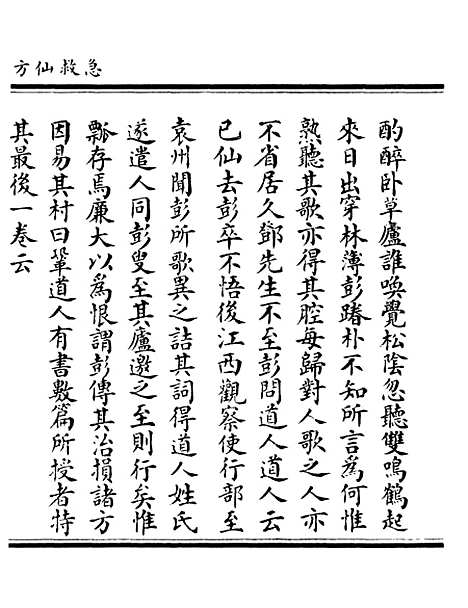 急救仙方
酌醉卧草廬誰喚覺松陰忽聽雙鳴鶴起
來日出穿林薄彭蹖朴不知所言爲何惟
熟聽其歌亦得其腔每歸對人歌之人亦
不省居久鄧先生不至彭問道人道人云
已仙去彭卒不悟後江西觀察使行部至
袁州聞彭所歌異之詰其詞得道人姓氏
遂遣人同彭叟至其廬邀之至則行矣惟
瓢存焉廉大以爲恨謂彭傳其治損諸方
因易其村曰鞏道人有書數篇所授者持
其最後一卷云